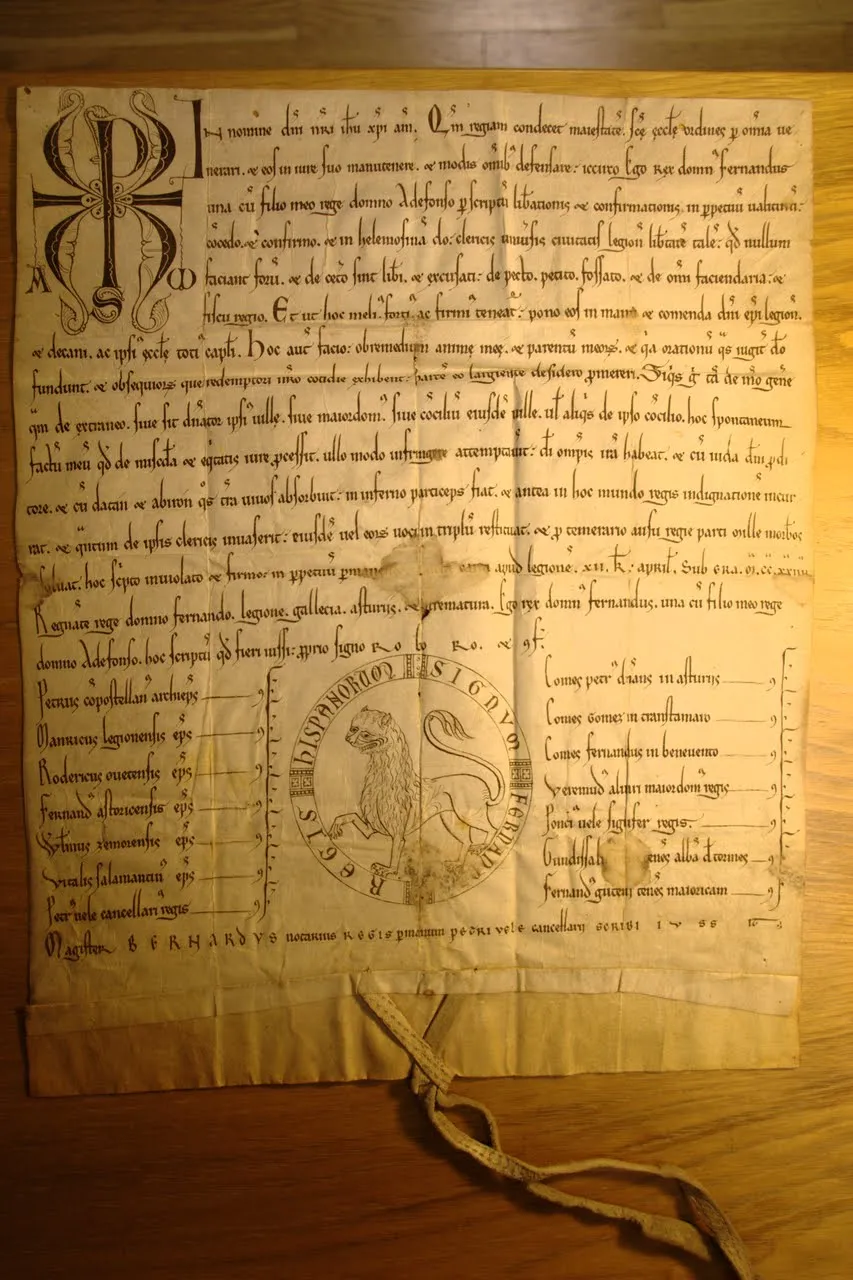 A ω S
IN nomine dm̅ nr̅i ih̅u xp̅i am̅. Qm̅ regiam condecet maiestate̅. sc̅e ęccłe uidues p̱ omnia ue
nerari. & eos in iure suo manutenere. & modis omib; defensare: iccirco Ego Rex domn fernandus
una cu̅ filio meo rege domno Adefonso p̱ scriptu̅ lib̅ationis & confirmationis. in pp̱etuu̅ ualituru̅:
co̅cedo. & confirmo. & in helemosina do: clericis uniuu̅sis ciuitatis legion̅ lib̅tate̅ tale̅: qd̅ nullum
faciant foru̅. & de ceto̅ sint lib̅i. & excusati: de pecto. petito. fossato. & de om̅i faciendaria: &
fiscu regio. Et ut hoc meli forti ac firmi teneat: pono eos in manu & comenda dm̅ ep̅i legion̅.
& decani. ac ipsi ęccłe toti capłi. Hoc aut̅ facio: ob remedium anime meę. & parentu̅ meoꝝ. & q̅a orationu̅ q̅s iugit̅ do̅
fundunt: & obsequioꝝ que redemptori nr̅o cotidie exhibent: parte̅ eo largiente desidero p̱mereri. Siq̅s g̅ ta̅ de mo̅ gen̅e
qm̅ de extraneo. siue sit dn̅ator ipsi uille. siue maiordom. siue co̅ciliu̅ eiusde̅ uille. ut̅ aliq̅s de ipso co̅cilio. hoc spontaneum
factu̅ meu̅ qd̅ de mis̅cdia & eq̅tatis iure p̱cessit. ullo modo infringere attemptau̅it: di̅ omp̅is ira̅ habeat. & cu̅ iuda dn̅i p̱di
tore. & cu̅ datan & abiron q̅s t̅ra uiuos absorbuit: in inferno particeps fiat. & antea in hoc mundo regis indignatione̅ incur
rat. & qntum de ipsis clericis inuaserit: eiusde̅ uel eoꝝ uoci in triplu̅ restituat. & p̱ temerario ausu regie parti mille morb̅os
soluat. hoc sc̅pto inuiolato & firmo: in pp̱etuu̅ p̱mane apud legione̅. xii. k̅. april̅. Sub era. m̅. cc. xxiiii
Regnate̅ rege domno fernando. legione. gallecia. asturiis. & extrematura. Ego rex domn̅ fernandus. una cu̅ filio meo rege
domno Adefonso. hoc scriptu̅ qd̅ fieri iussi: p̱prio signo Ro bo Ro. & 9f̅.
Petrus co̅postellan̅ archiep̅s 9f̅
Manricus legionensis ep̅s 9f̅
Rodericus ouetensis ep̅s 9f̅
Fernand astoricensis ep̅s 9f̅
Wl̅mus zemorensis ep̅s 9f̅
Vitalis salamantin̅ ep̅s 9f̅
Petr uele cancellari regis 9f̅
SIGNVM FERNADI REGIS HISPANORUM
Comes petr dn̅ans in asturiis 9f̅
Comes Gomez in transtamaro 9f̅
Comes fernandus in beneuento 9f̅
Veremud aluari maiordom regis 9f̅
Ponci uele signifer regis. 9f̅
Gundissalu enes alba d̅ tormes 9f̅
Fernand guterii tenes maioricam 9f̅
Magister BERNARDVS notarius REGIS p̱ manum petri vele cancellarii scribi iussit